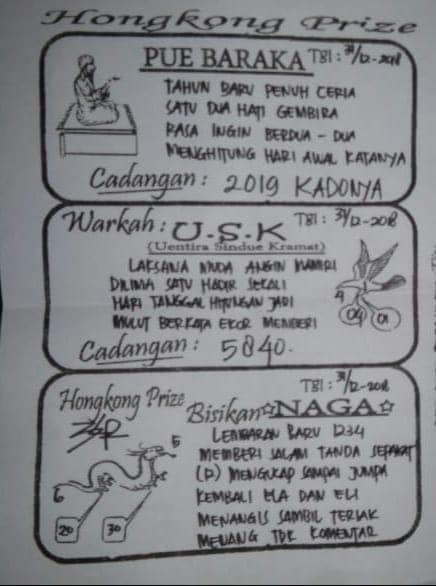 Hongkong Prize
PUE BARAKA Tgl : 31/12-2018
TAHUN BARU PENUH CERIA
SATU DUA HATI GEMBIRA
RASA INGIN BERDUA - DUA
MENGHITUNG HARI AWAL KATANYA
Cadangan : 2019 KADONYA
Warkah : U.S.K Tgl : 31/12-2018
(Uentira Sindue Kramat)
LAKSANA MUDA ANGIN MAMIRI
DILIMA SATU HADIR SEKALI
HARI TANGGAL HITUNGAN JADI
MULUT BERKATA EKOR MEMBERI
9
04 01
Cadangan : 5840.
Tgl : 31/12-2018
Hongkong Prize Bisikan ☆NAGA☆
LEMBARAN BARU 1234
MEMBERI SALAM TANDA SEPAKAT
(12) MENGUCAP SAMPAI JUMPA
KEMBALI ELA DAN ELI
MENANGIS SAMBIL TERIAK
MENANG TDK KOMENTAR
5
6
20 30